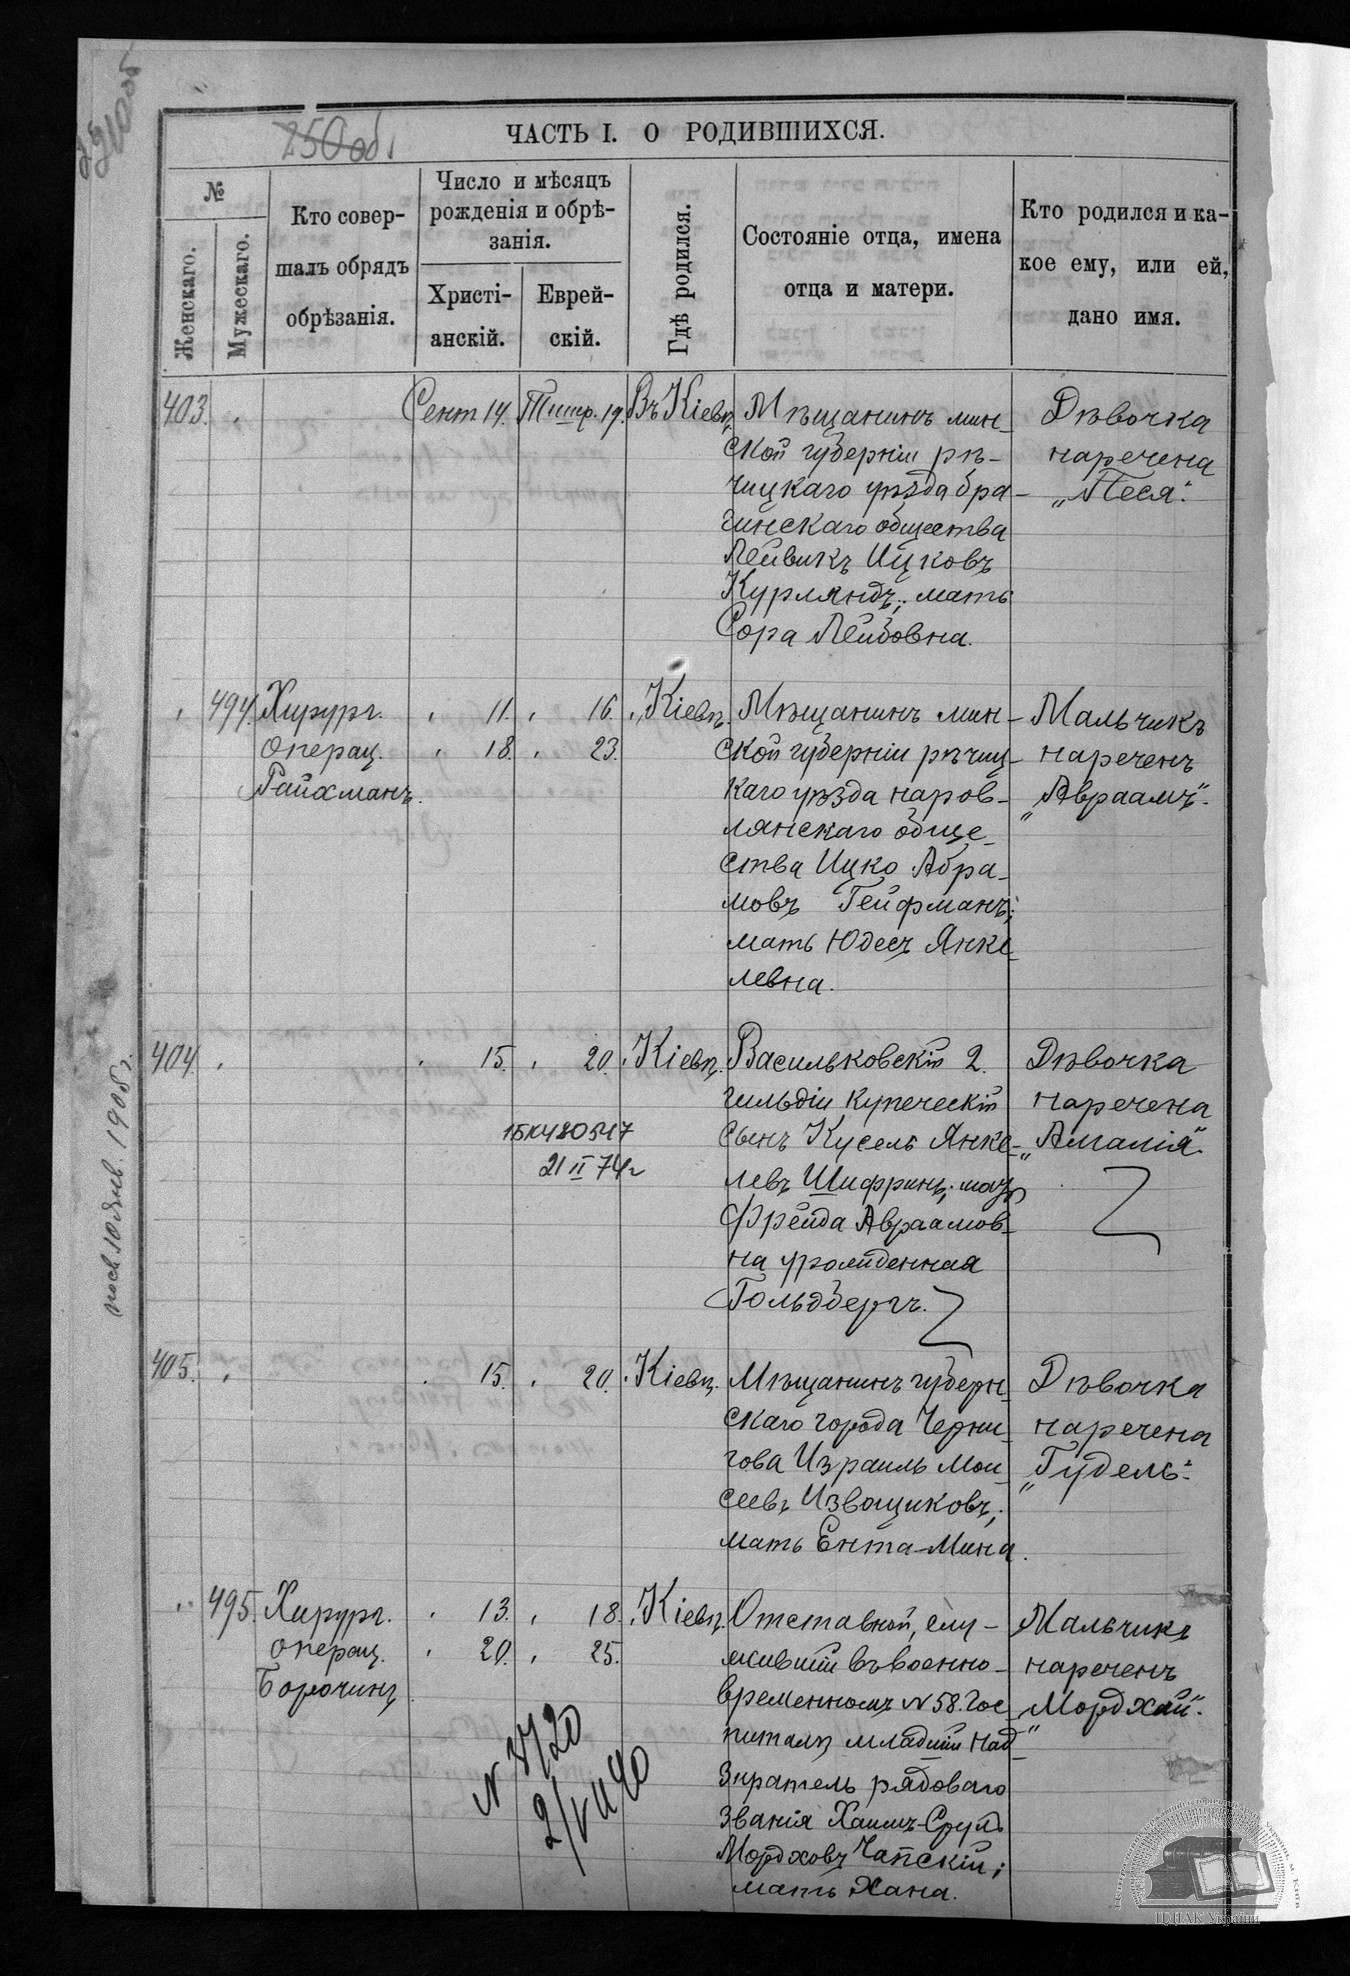 250об.
ЧАСТЬ I. О РОДИВШИХСЯ.
№
Женскаго.
Мужескаго.
Кто совер-
шалъ обрядъ
обрѣзанія.
Число и мѣсяцъ
рожденія и обрѣ-
занія.
Христі-
анскій.
Еврей-
скій.
Гдѣ родился.
Состояніе отца, имена
отца и матери.
Кто родился и ка-
кое ему, или ей,
дано имя.
403. Сент. 14. Тишр. 19. Въ Кіевѣ.
Мѣщанинъ мин-
ской губерніи рѣ-
чицкаго уѣзда бра-
гинскаго общества
Лейвикъ Ицковъ
Курляндъ; мать
Сора Лейбовна.
Дѣвочка
наречена
„Песя".
494. Хирург. 11. 16. Кіевѣ.
операц. 18. 23.
Райхманъ.
Мѣщанинъ мин-
ской губерніи рѣчиц-
каго уѣзда наров-
лянскаго обще-
ства Ицко Абра-
мовъ Гейфманъ;
мать Юдесъ Янке-
левна.
Мальчикъ
нареченъ
„Авраамъ".
404. 15. 20. Кіевѣ.
Васильковскій 2.
гильдіи купеческій
сынъ Кусель Янке-
левъ Шифринъ; мать
Фрейда Авраамов-
на урожденная
Гольдбергъ.
Дѣвочка
наречена
„Амалія".
21 II 74г
посв. 10 Янв. 1906 г.
405. 15. 20. Кіевѣ.
Мѣщанинъ губерн-
скаго города Черни-
гова Израиль Мои-
сеевъ Извощиковъ;
мать Ента-Мина.
Дѣвочка
наречена
„Гудель".
495. Хирург. 13. 18. Кіевѣ.
операц. 20. 25.
Борочинъ
Отставной, слу-
жившій въ военно-
временномъ №58. гос-
питалѣ младшій над-
зиратель рядоваго
званія Хаимъ-Сруль
Мордховъ Чапскій;
мать Хана.
Мальчикъ
нареченъ
„Мордхай".
N 8720
2/VII 40
ЦДІАК України